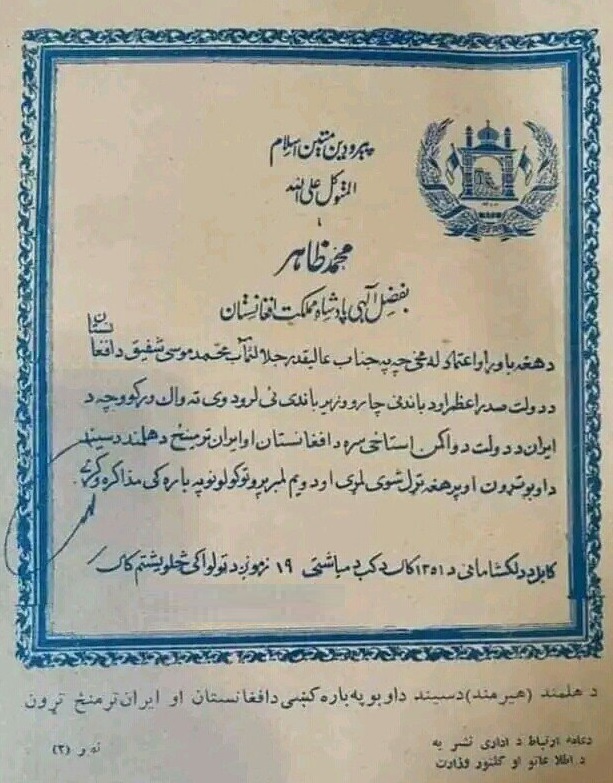 پیرو دین متین اسلام
المتوکل علی الله
محمد ظاهر
بفضل الهی پادشاه مملکت افغانستان
د هغه باور او اعتماد له مخې چه په جناب عالیقدر جلالتمآب محمد موسی شفیق د افغانستان
د دولت صدراعظم او د باندنی چارو وزیر باندی ئی لرو دوی ته واک ورکوو چه د
ایران د دولت د واکمن استاځی سره د افغانستان او ایران ترمنځ د هلمند د سیند
د اوبو تړون او پر هغه تړل شوی لمړی او دویم لمبر پروتوکولونو په باره کی مذاکره وکړی.
کابل د دلکشا ماڼی د ۱۳۵۱ کال د کب د میاشتی ۱۹ زموږ د ټولواکی څلویښتم کال
د هلمند (هیرمند) د سیند د اوبو په باره کښی د افغانستان او ایران ترمنځ تړون
د عامه ارتباط د اداری نشریه
د اطلاعاتو او کلتور وزارت
نمبر (۲)